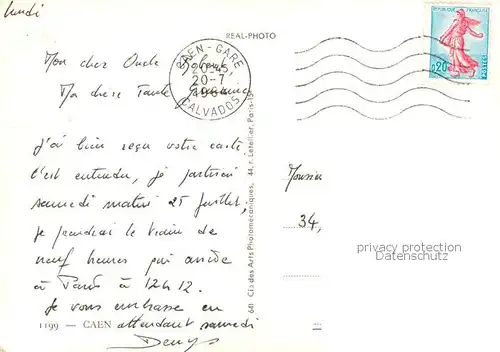 lundi
REAL-PHOTO
CAEN-GARE
20-7
1964
CALVADOS
RÉPUBLIQUE FRANÇAISE
0,20
POSTES
Mon cher Oncle
Ma chère Tante
J'ai bien reçu votre carte
C'est entendu, je partirai
samedi matin 25 juillet,
je prendrai le train de
neuf heures qui arrive
à Paris à 12h12
Je vous embrasse en
attendant samedi
Denys
1199 — CAEN
641 Cie des Arts Photomécaniques, 44, r. Letellier, Paris-15
Monsieur
34,
privacy protection
Datenschutz